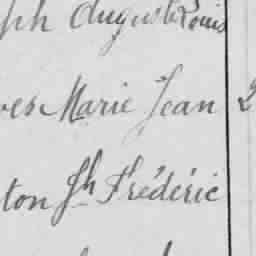 ph Auguste Louis
ves Marie Jean 2
ton Jh Frédéric